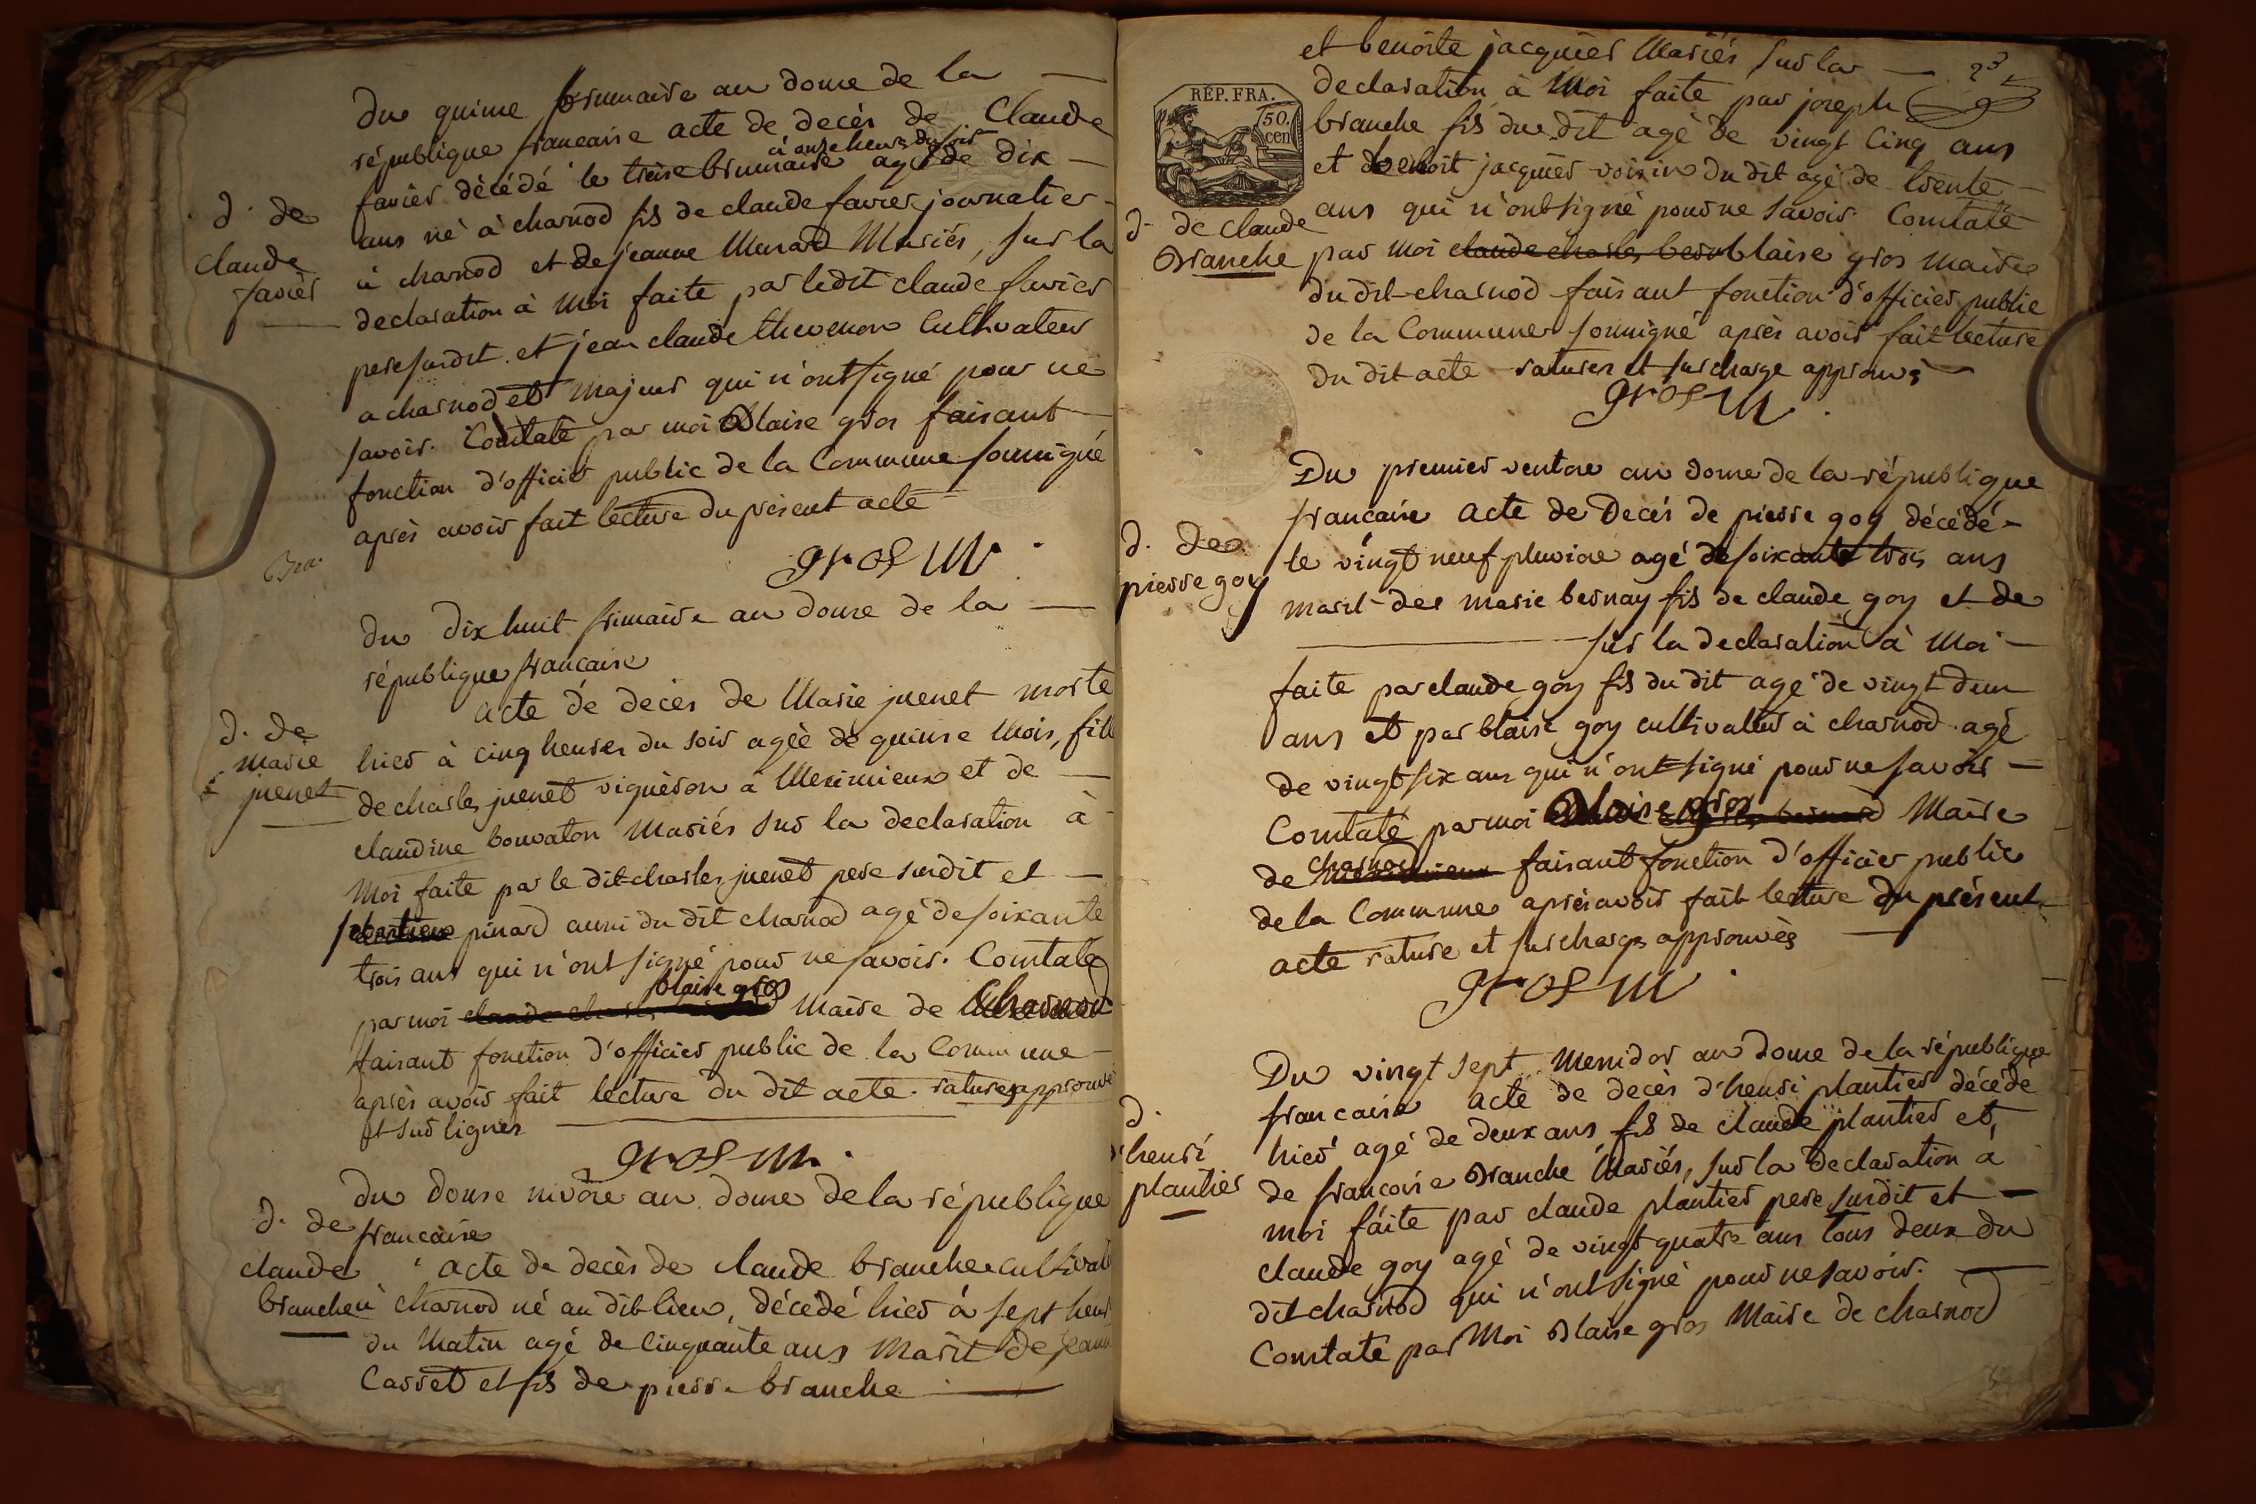 Du quinze brumaire an douze de la
république francaise acte de decès de Claude
à onze heures du soir
favier décédé le treize brumaire agé de dix
ans né à charnod fils de claude favier journalier
à charnod et de jeanne Murard Mariés, sur la
declaration à moi faite par ledit claude favier
pere susdit et jean claude thevenon Cultivateur
a charnod et majeur qui n'ont signé pour ne
savoir. Constaté par moi Blaise gros faisant
fonction d'officier public de la Commune soussigné
après avoir fait lecture du présent acte
d. de
claude
favier
gros M.
Bra
du dix huit frimaire an douze de la
république francaise
acte de decès de Marie juenet morte
hier à cinq heures du soir agée de quinze Mois, fille
de charles juenet vigneron à Merimieux et de
claudine bouvaton Mariés sur la declaration à
Moi faite par le dit charles juenet pere susdit et
pinard aussi du dit charnod agé de soixante
trois ans qui n'ont signé pour ne savoir. Constaté
blaise gros
par moi claude charles maire de Charnod
faisant fonction d'officier public de la Commune
après avoir fait lecture du dit acte. ratures approuvé
et sur lignes
d. de
marie
juenet
gros M.
du douze nivose an douze de la république
francaise
acte de decès de claude branche cultivateur
à charnod né au dit lieu, décédé hier à sept heures
du Matin agé de Cinquante ans Marit de jeanne
Casset et fils de pierre branche
d. de
claude
branche
23
et benoite jacquier Mariés sur la
declaration à Moi faite par joseph
branche fils du dit agé de vingt Cinq ans
et benoit jacquier voisin du dit agé de trente
ans qui n'ont signé pour ne savoir Constaté
par moi claude charles bern blaise gros maire
du dit charnod faisant fonction d'officier public
de la Commune soussigné après avoir fait lecture
du dit acte ratures et surcharge approuvés
RÉP. FRA.
50.
cen
d. de claude
Branche
gros M.
Du premier ventose an douze de la république
francaise acte de Decès de pierre goy décédé
le vingt neuf pluviose agé de soixante trois ans
marit de marie bernay fils de claude goy et de
sur la declaration à Moi
faite par claude goy fils du dit agé de vingt deux
ans et par blaise goy cultivateur à charnod agé
de vingt six ans qui n'ont signé pour ne savoir
Constaté par moi Blaise gros bernard Maire
charnod
de faisant fonction d'officier public
de la Commune après avoir fait lecture du présent
acte rature et surcharge approuvés
d. de
pierre goy
gros M.
Du vingt sept Messidor an douze de la république
francaise acte de decès d'henri plantier décédé
hier agé de deux ans fils de claude plantier et
de francoise Branche Mariés, sur la declaration à
moi faite par claude plantier pere susdit et
claude goy agé de vingt quatre ans tous deux du
dit charnod qui n'ont signé pour ne savoir.
Constaté par Moi Blaise gros Maire de charnod
d.
d'henri
plantier